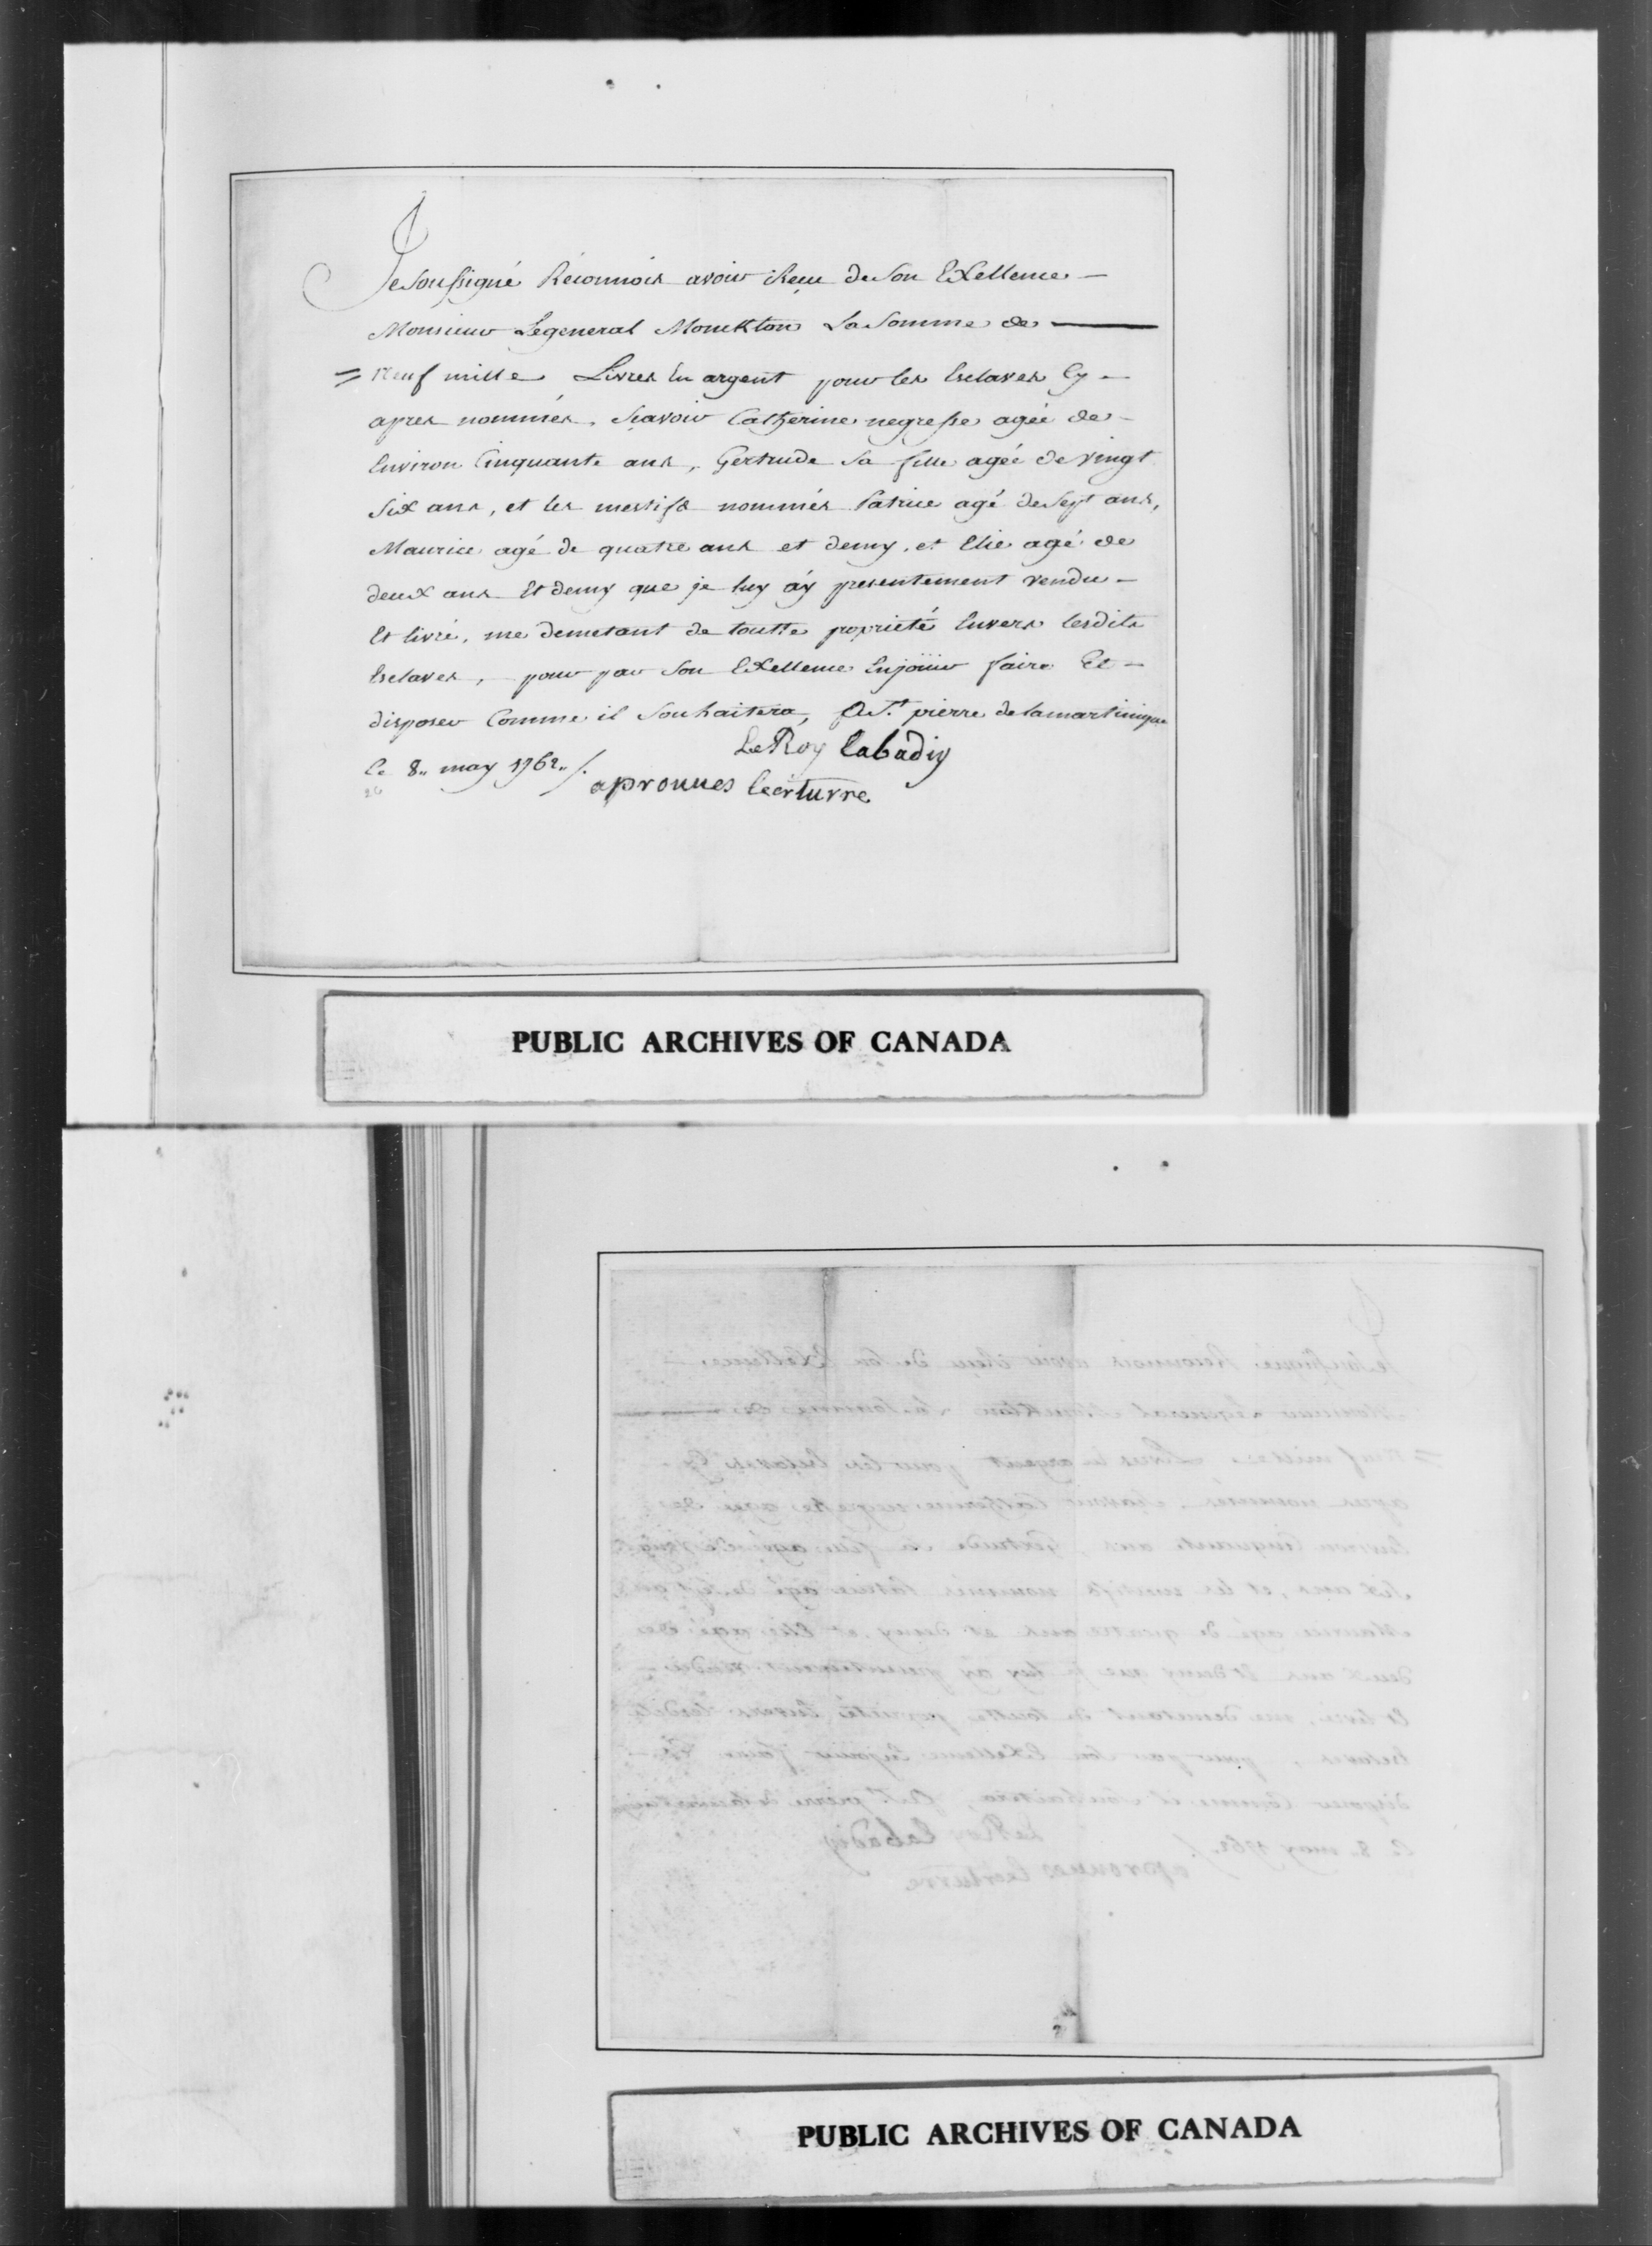 Je soussigné Réconnois avoir Reçu de Son Exellence —
Monsieur Legeneral Monckton La Somme de —
= Neuf mille Livres En argent pour les Esclaves Cy —
apres nommés, Sçavoir Catherine negresse agée de —
Environ Cinquante ans, Gertrude Sa fille agée de vingt
Six ans, et les mestifs nommés Patrice agé de Sept ans,
Maurice agé de quatre ans et demy, et Elie agé de
deux ans Et demy que je luy áy presentement vendu —
Et livré, me demetant de toutte proprieté Envers lesdits
Esclaves, pour par Son Exellence Enjoüir faire Et —
disposer Comme il Souhaitera, A St. pierre de lamartinique
Le 8.. may 1762../.
LeRoy Labadiy
aprouues lecriturre
26
PUBLIC ARCHIVES OF CANADA
PUBLIC ARCHIVES OF CANADA